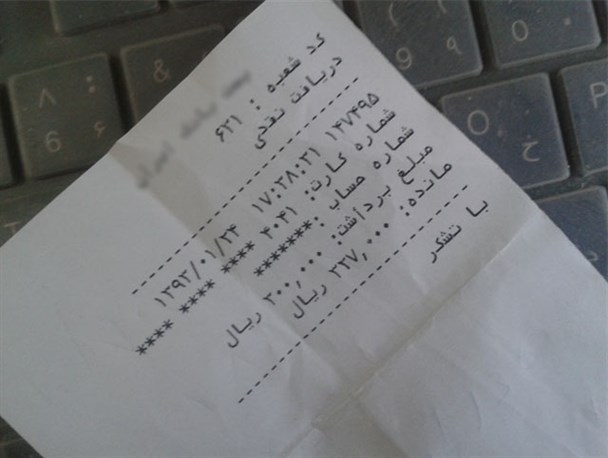 کد شعبه : ۶۲۱
دریافت نقدی
۱۳۹۳/۰۱/۲۴ ۱۷:۲۸:۲۱ ۱۴۷۴۹۵
شماره کارت: ۴۰۴۱ **** **** ****
شماره حساب :*******
مبلغ برداشت: ۲۰۰,۰۰۰ ریال
مانده: ۲۲۷,۰۰۰ ریال
با تشکر